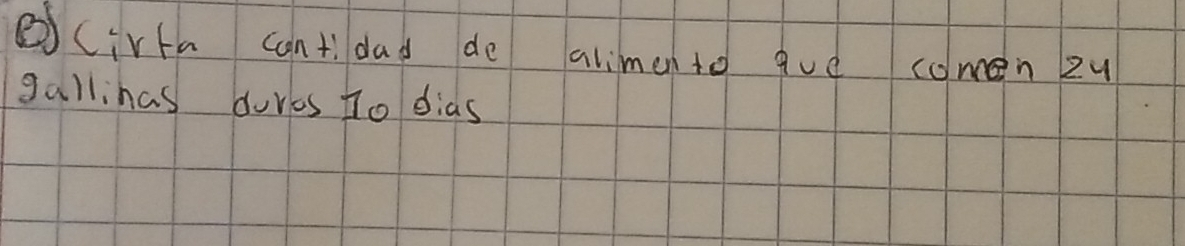 e) Cirta cantidad de alimento que comen 24
gallinas duros 10 dias